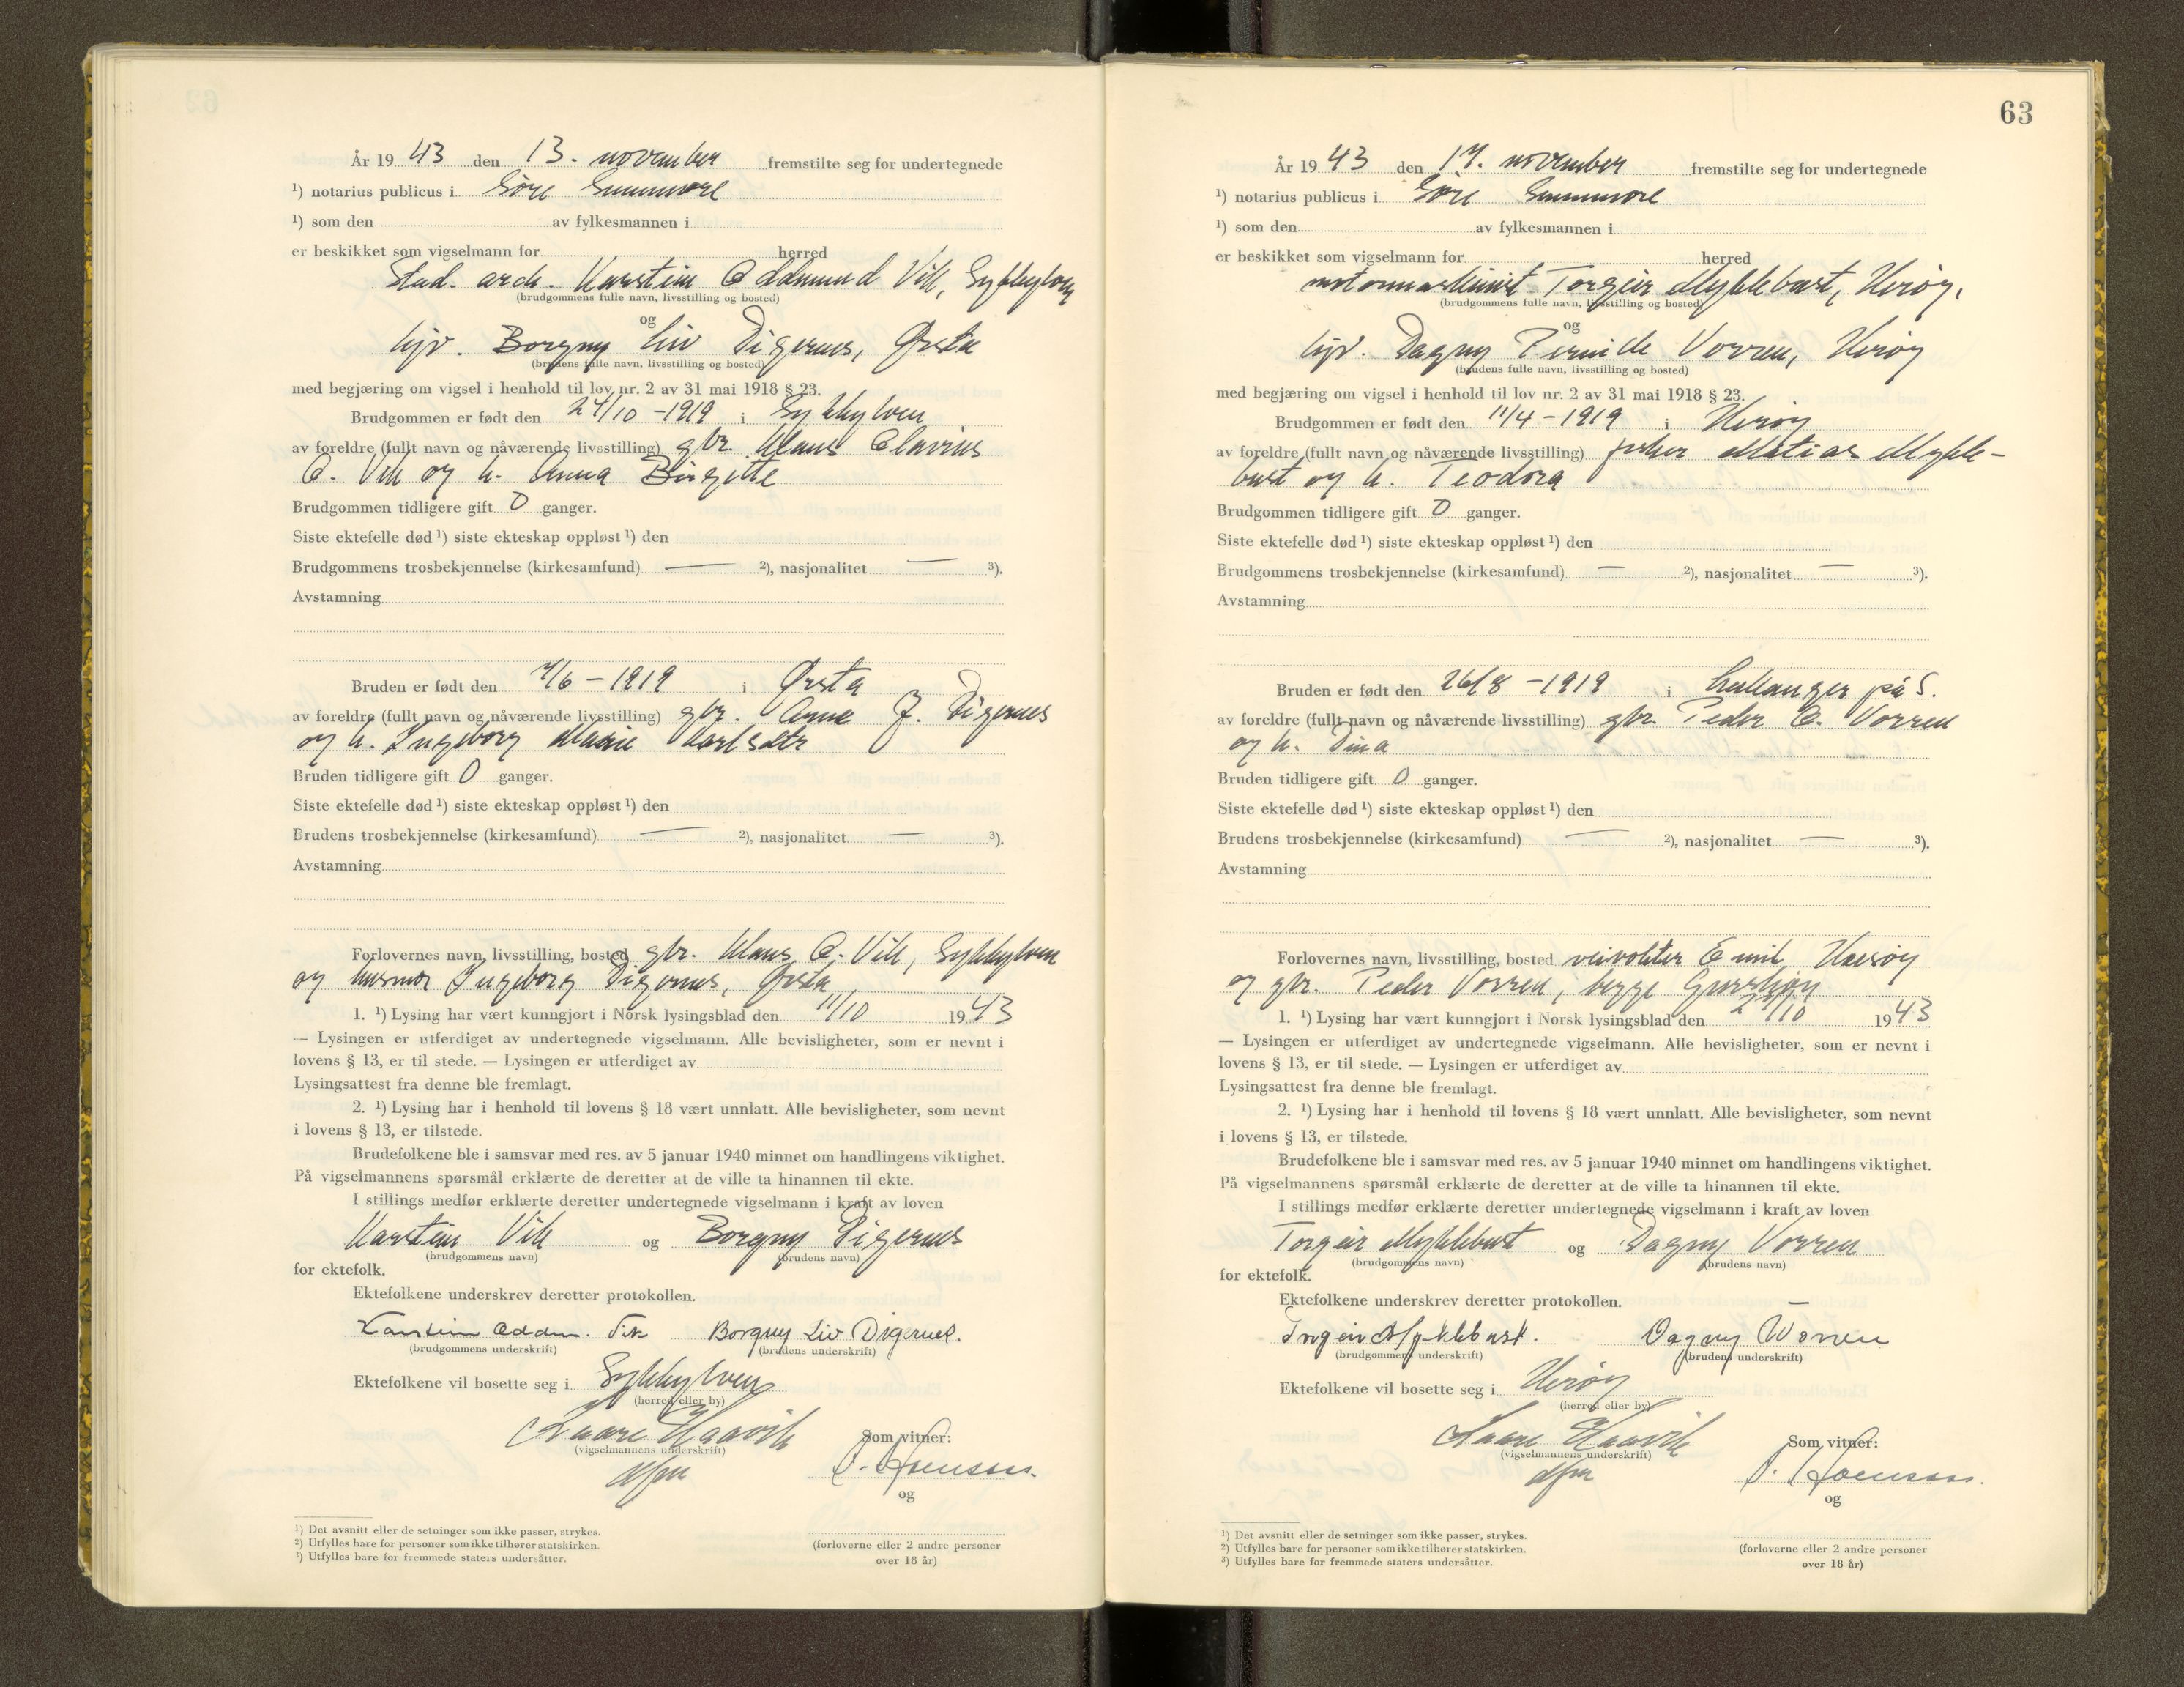 År 19 43 den 13. november fremstilte seg for undertegnede
¹) notarius publicus i Søre Sunnmøre
¹) som den av fylkesmannen i
er beskikket som vigselmann for herred
Stud. ark. Karstein Oddmund Vik, Sykkylven
(brudgommens fulle navn, livsstilling og bosted)
og
hjv. Borgny Liv Digernes, Ørsta
(brudens fulle navn, livsstilling og bosted)
med begjæring om vigsel i henhold til lov nr. 2 av 31 mai 1918 § 23.
Brudgommen er født den 24/10 - 1919 i Sykkylven
av foreldre (fullt navn og nåværende livsstilling) gbr. Klaus Olavius
O. Vik og h. Anna Birgitte
Brudgommen tidligere gift 0 ganger.
Siste ektefelle død ¹) siste ekteskap oppløst ¹) den
Brudgommens trosbekjennelse (kirkesamfund) — ²), nasjonalitet — ³).
Avstamning
Bruden er født den 7/6 - 1919 i Ørsta
av foreldre (fullt navn og nåværende livsstilling) gbr. Arne J. Digernes
og h. Ingeborg Marie Karlsdtr
Bruden tidligere gift 0 ganger.
Siste ektefelle død ¹) siste ekteskap oppløst ¹) den
Brudens trosbekjennelse (kirkesamfund) — ²), nasjonalitet — ³).
Avstamning
Forlovernes navn, livsstilling, bosted gbr. Klaus O. Vik, Sykkylven
og husmor Ingeborg Digernes, Ørsta
1. ¹) Lysing har vært kunngjort i Norsk lysingsblad den 11/10 19 43
— Lysingen er utferdiget av undertegnede vigselmann. Alle bevisligheter, som er nevnt i
lovens § 13, er til stede. — Lysingen er utferdiget av
Lysingsattest fra denne ble fremlagt.
2. ¹) Lysing har i henhold til lovens § 18 vært unnlatt. Alle bevisligheter, som nevnt
i lovens § 13, er tilstede.
Brudefolkene ble i samsvar med res. av 5 januar 1940 minnet om handlingens viktighet.
På vigselmannens spørsmål erklærte de deretter at de ville ta hinannen til ekte.
I stillings medfør erklærte deretter undertegnede vigselmann i kraft av loven
Karstein Vik og Borgny Digernes
(brudgommens navn) (brudens navn)
for ektefolk.
Ektefolkene underskrev deretter protokollen.
Karstein Oddm. Vik Borgny Liv Digernes.
(brudgommens underskrift) (brudens underskrift)
Ektefolkene vil bosette seg i Sykkylven
(herred eller by)
Kaare Haavik Som vitner:
(vigselmannens underskrift)
dfm
og
¹) Det avsnitt eller de setninger som ikke passer, strykes.
²) Utfylles bare for personer som ikke tilhører statskirken.
³) Utfylles bare for fremmede staters undersåtter.
(forloverne eller 2 andre personer
over 18 år)
63
År 19 43 den 17. november fremstilte seg for undertegnede
¹) notarius publicus i Søre Sunnmøre
¹) som den av fylkesmannen i
er beskikket som vigselmann for herred
motormaskinist Torgeir Myklebust, Herøy,
(brudgommens fulle navn, livsstilling og bosted)
og
hjv. Dagny Pernille Vorren, Herøy
(brudens fulle navn, livsstilling og bosted)
med begjæring om vigsel i henhold til lov nr. 2 av 31 mai 1918 § 23.
Brudgommen er født den 11/4 - 1919 i Herøy
av foreldre (fullt navn og nåværende livsstilling) fisker Matias Mykle-
bust og h. Teodora
Brudgommen tidligere gift 0 ganger.
Siste ektefelle død ¹) siste ekteskap oppløst ¹) den
Brudgommens trosbekjennelse (kirkesamfund) — ²), nasjonalitet — ³).
Avstamning
Bruden er født den 26/8 - 1919 i på S.
av foreldre (fullt navn og nåværende livsstilling) gbr. Peder O. Vorren
og h. Dina
Bruden tidligere gift 0 ganger.
Siste ektefelle død ¹) siste ekteskap oppløst ¹) den
Brudens trosbekjennelse (kirkesamfund) — ²), nasjonalitet — ³).
Avstamning
Forlovernes navn, livsstilling, bosted veivokter Emil
og gbr. Peder Vorren, begge Gurskøy
1. ¹) Lysing har vært kunngjort i Norsk lysingsblad den 19 43
— Lysingen er utferdiget av undertegnede vigselmann. Alle bevisligheter, som er nevnt i
lovens § 13, er til stede. — Lysingen er utferdiget av
Lysingsattest fra denne ble fremlagt.
2. ¹) Lysing har i henhold til lovens § 18 vært unnlatt. Alle bevisligheter, som nevnt
i lovens § 13, er tilstede.
Brudefolkene ble i samsvar med res. av 5 januar 1940 minnet om handlingens viktighet.
På vigselmannens spørsmål erklærte de deretter at de ville ta hinannen til ekte.
I stillings medfør erklærte deretter undertegnede vigselmann i kraft av loven
Torgeir Myklebust og Dagny Vorren
(brudgommens navn) (brudens navn)
for ektefolk.
Ektefolkene underskrev deretter protokollen.
Torgeir Myklebust. Dagny Worren
(brudgommens underskrift) (brudens underskrift)
Ektefolkene vil bosette seg i Herøy
(herred eller by)
Kaare Haavik Som vitner:
(vigselmannens underskrift)
dfm
og
¹) Det avsnitt eller de setninger som ikke passer, strykes.
²) Utfylles bare for personer som ikke tilhører statskirken.
³) Utfylles bare for fremmede staters undersåtter.
(forloverne eller 2 andre personer
over 18 år)